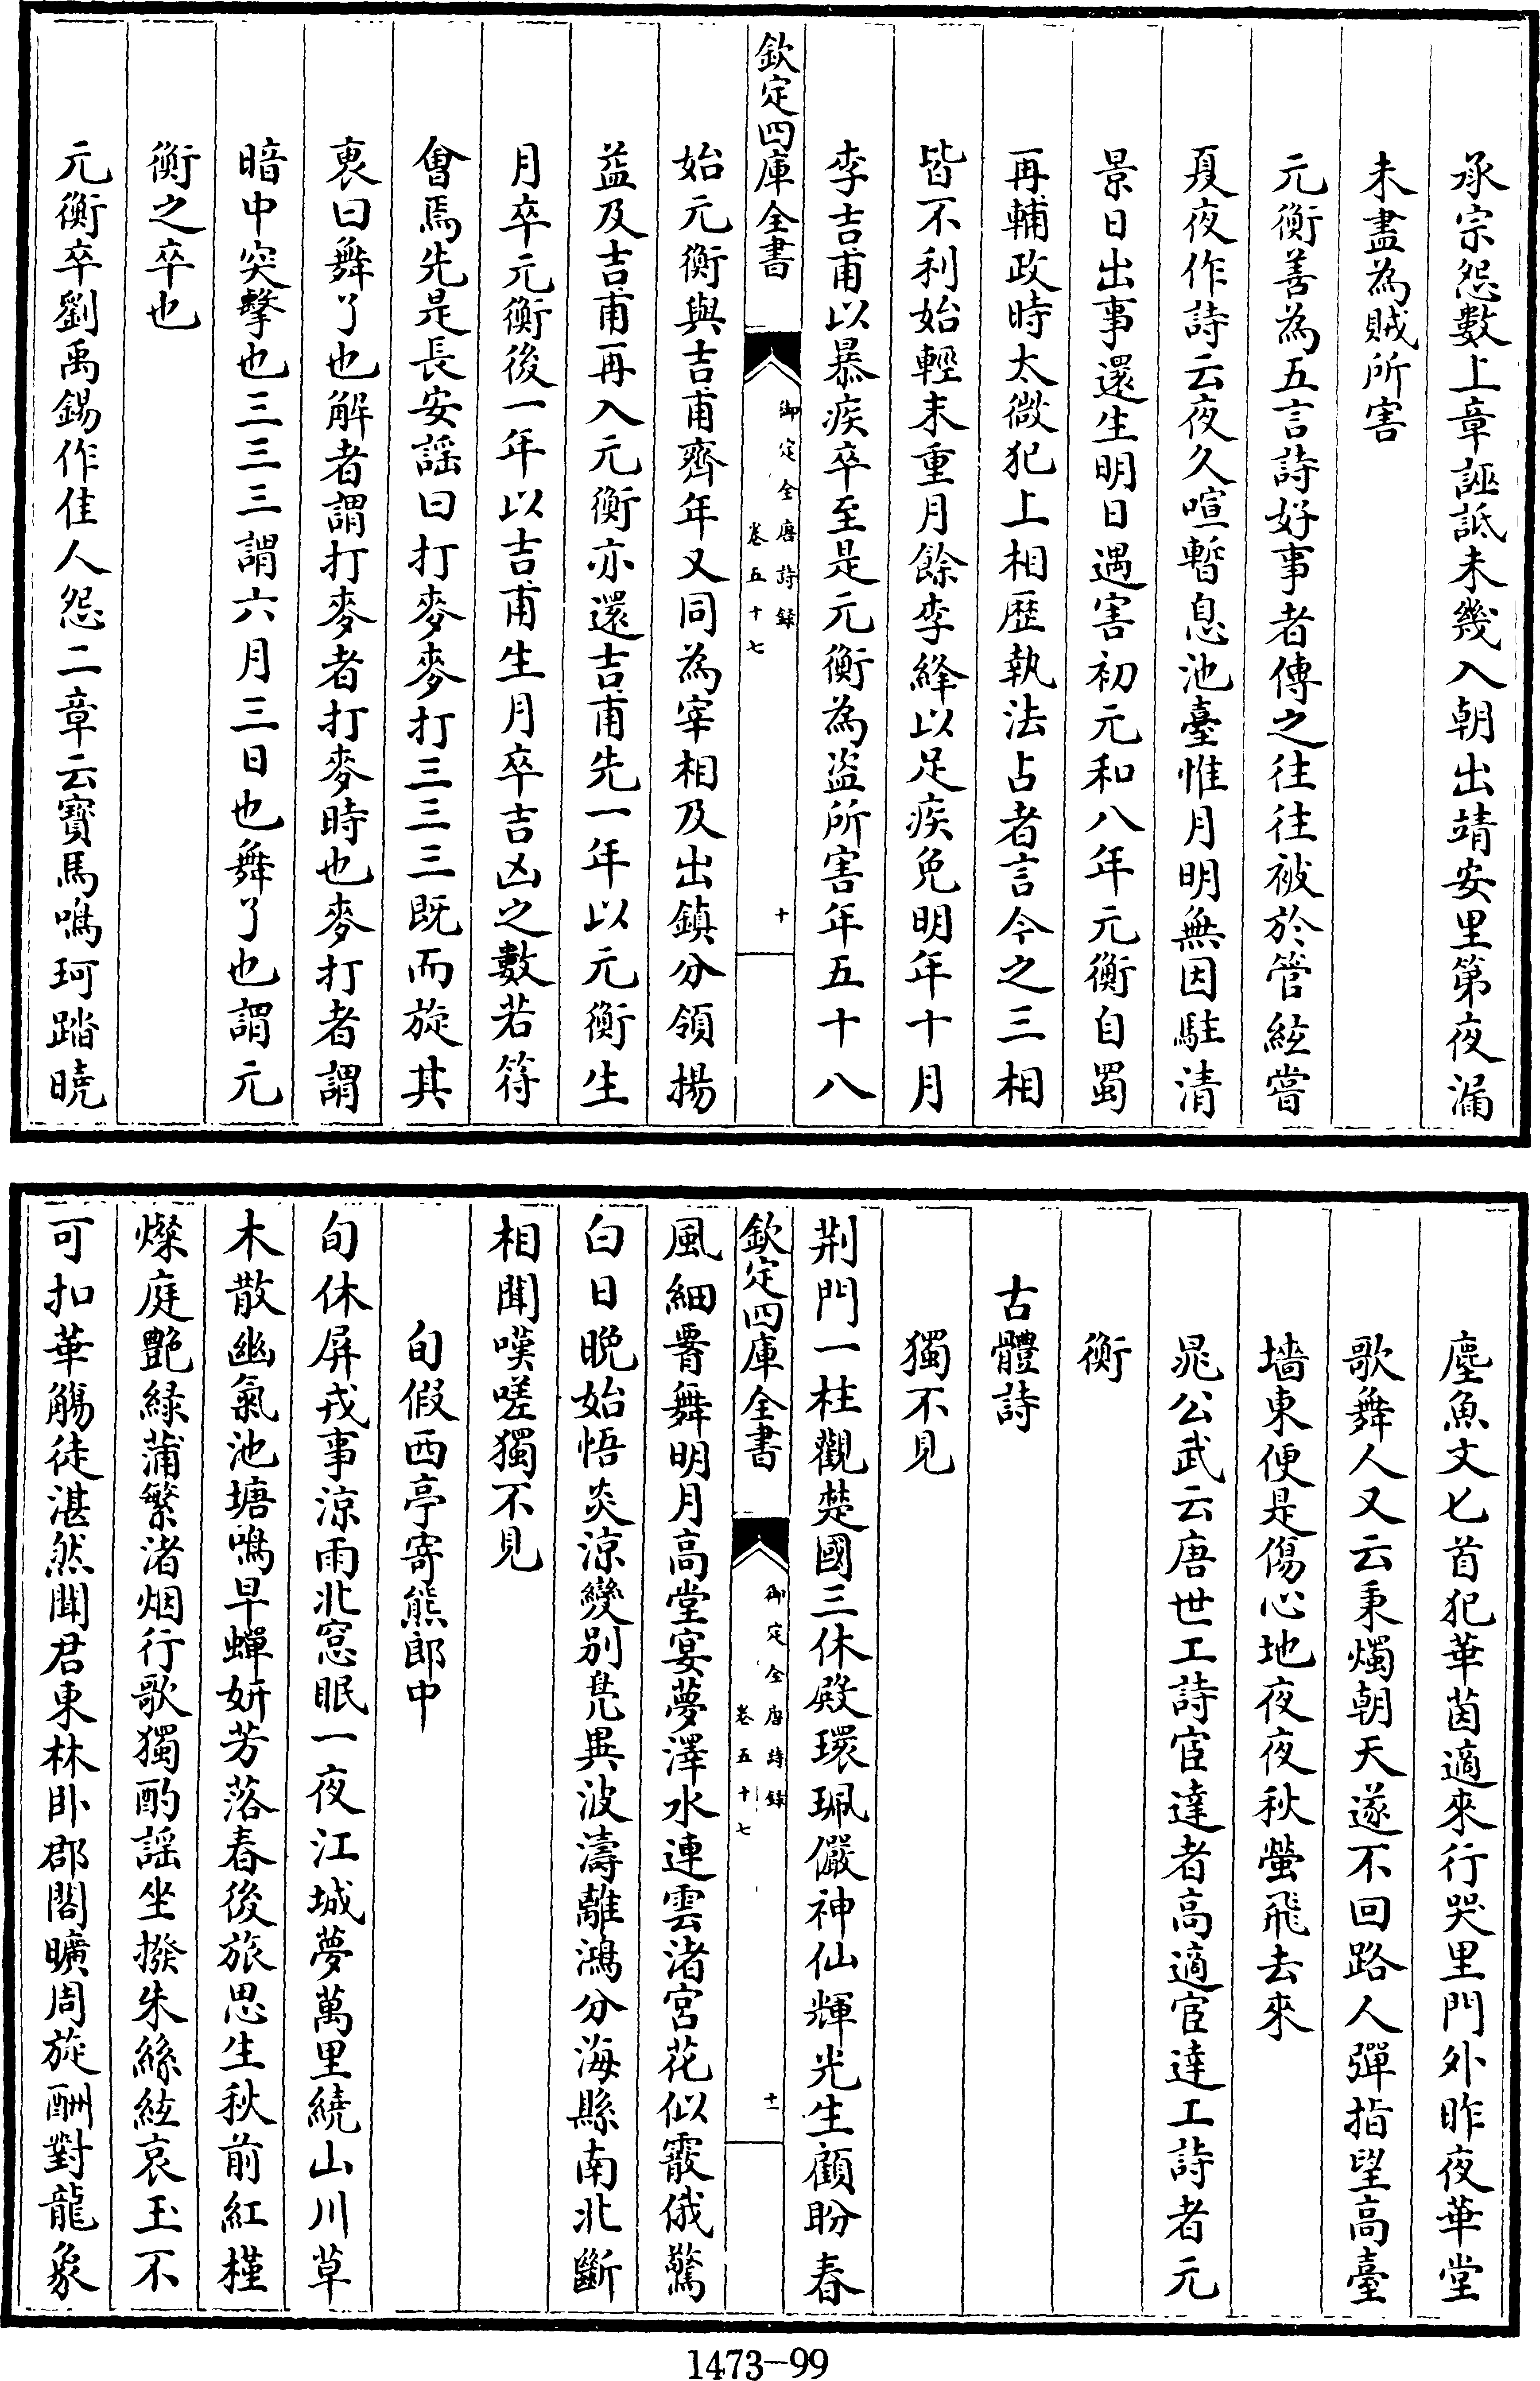 承宗怨數上章誣詆未幾入朝出靖安里第夜漏
未盡為賊所害
元衡善為五言詩好事者傳之往往被於管絃嘗
夏夜作詩云夜久喧暫息池臺惟月明無因駐清
景日出事還生明日遇害初元和八年元衡自蜀
再輔政時太微犯上相歷執法占者言今之三相
皆不利始輕末重月餘李絳以足疾免明年十月
李吉甫以暴疾卒至是元衡為盜所害年五十八
欽定四庫全書
御定全唐詩錄
卷五十七
十
始元衡與吉甫齊年又同為宰相及出鎮分領揚
益及吉甫再入元衡亦還吉甫先一年以元衡生
月卒元衡後一年以吉甫生月卒吉凶之數若符
會焉先是長安謡曰打麥麥打三三三既而旋其
裏曰舞了也解者謂打麥者打麥時也麥打者謂
暗中突擊也三三三謂六月三日也舞了也謂元
衡之卒也
元衡卒劉禹錫作佳人怨二章云寶馬鳴珂踏曉
塵魚文匕首犯華茵適來行哭里門外昨夜華堂
歌舞人又云秉燭朝天遂不回路人彈指望高臺
墻東便是傷心地夜夜秋螢飛去來
晁公武云唐世工詩宦達者高適宦達工詩者元
衡
古體詩
獨不見
荆門一柱觀楚國三休殿環珮儼神仙輝光生顧盼春
欽定四庫全書
御定全唐詩錄
卷五十七
十一
風細署舞明月高堂宴夢澤水連雲渚宮花似霰俄驚
白日晚始悟炎涼變別㠀異波濤離鴻分海縣南北斷
相聞嘆嗟獨不見
旬假西亭寄熊郎中
旬休屏戎事涼雨北窓眠一夜江城夢萬里繞山川草
木散幽氣池塘鳴早蟬妍芳落春後旅思生秋前紅槿
燦庭艷綠蒲繁渚烟行歌獨酌謡坐撥朱絲絃哀玉不
可扣華觴徒湛然聞君東林卧郡閣曠周旋酬對龍象
1473-99